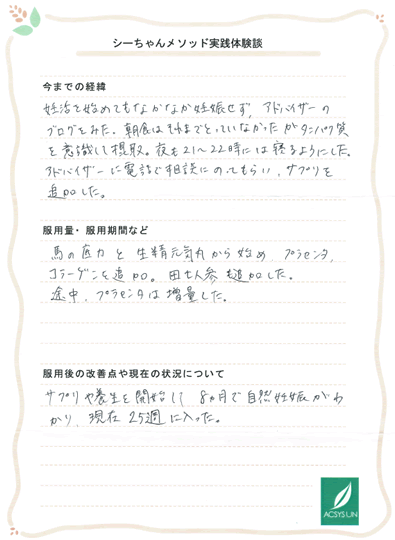 シーちゃんメソッド実践体験談
今までの経緯
妊活を始めてもなかなか妊娠せず、アドバイザーの
ブログをみた。朝食はそれまでとっていなかったがタンパク質
を意識して摂取。夜も21〜22時には寝るようにした。
アドバイザーに電話で相談にのってもらい、サプリを
追加した。
服用量・服用期間など
馬の底力と生精元気丸から始め、プラセンタ、
コラーゲンを追加。田七人参も追加した。
途中、プラセンタは増量した。
服用後の改善点や現在の状況について
サプリや養生を開始して8ヵ月で自然妊娠がわ
かり、現在25週に入った。
ACSYSLIN